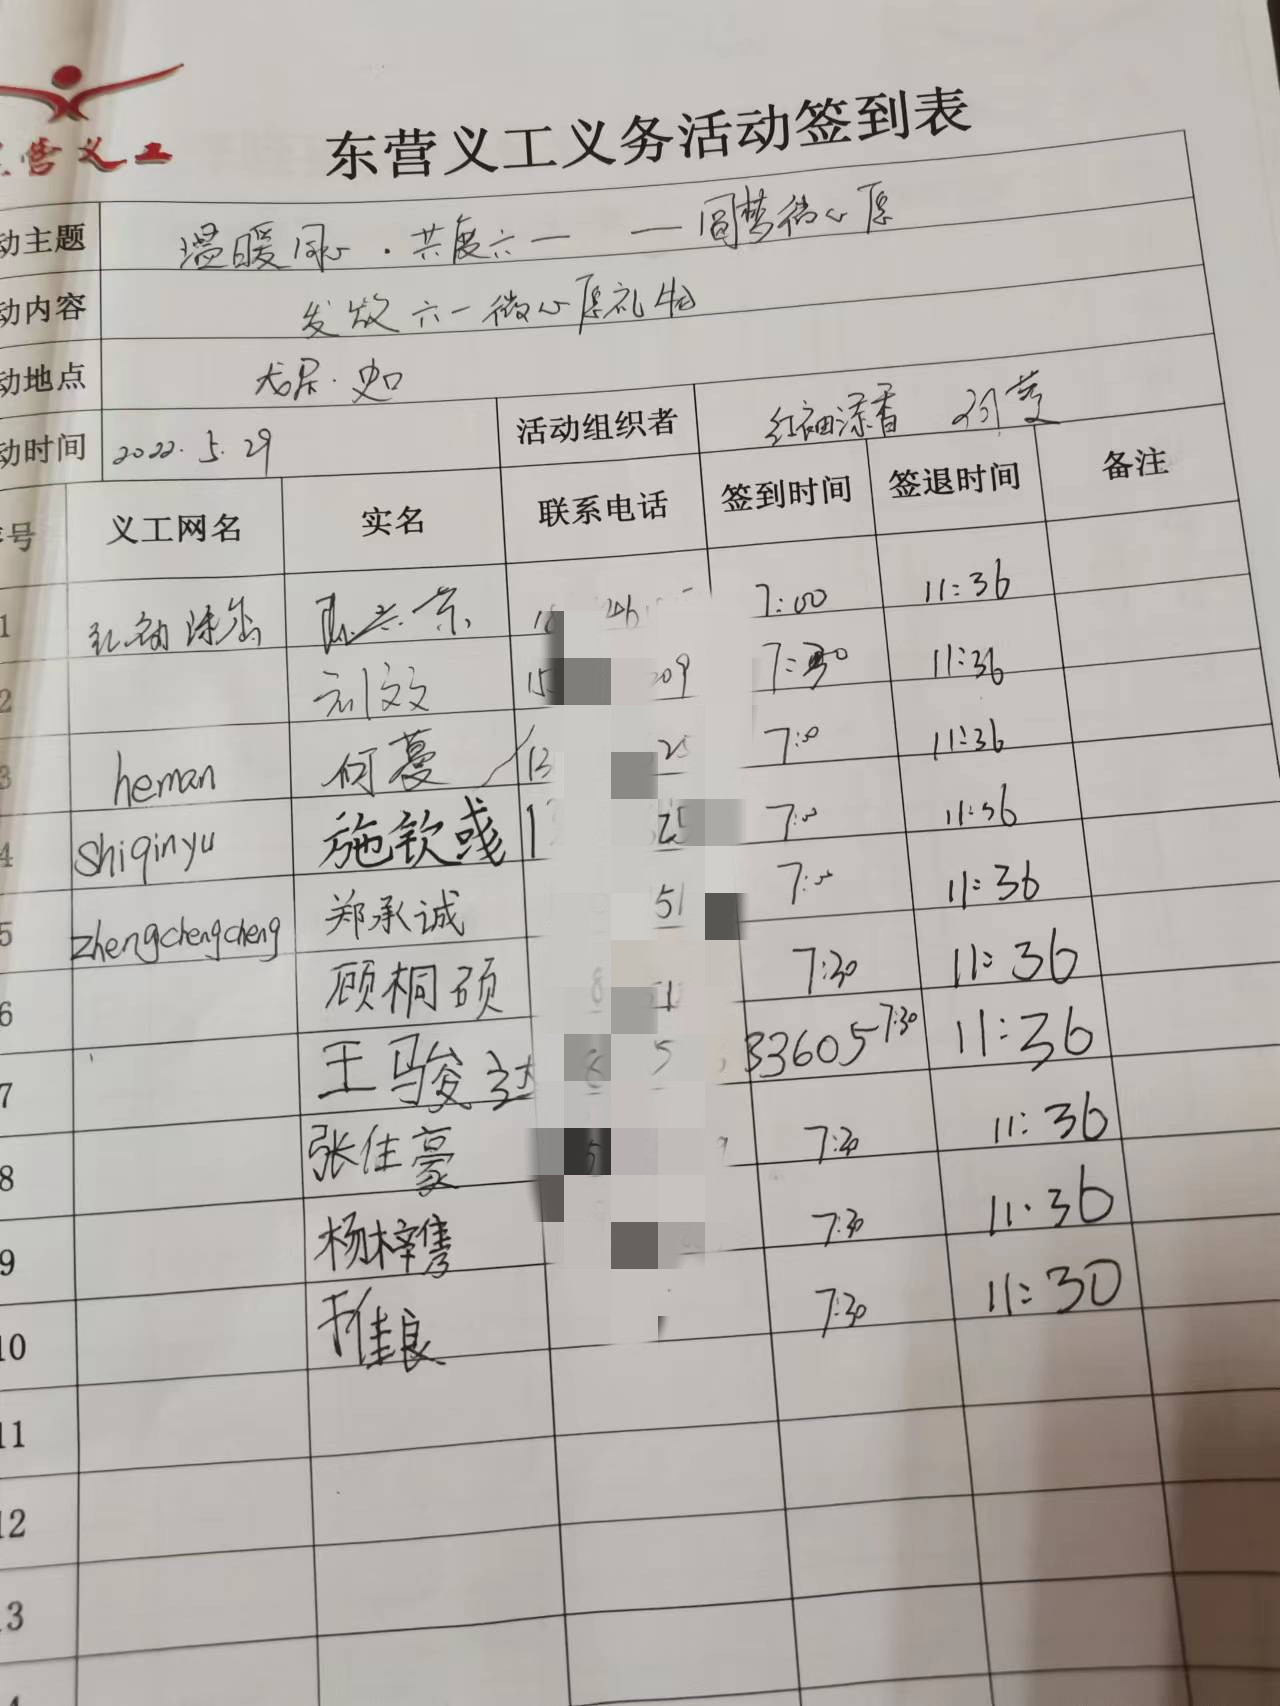 营义工
东营义工义务活动签到表
动主题 温暖同心·共度六一 — 圆梦微心愿
动内容 发放六一微心愿礼物
动地点
动时间 2022.5.29 活动组织者 红袖添香
号 义工网名 实名 联系电话 签到时间 签退时间 备注
1 红袖添香 7:00 11:36
2 刘文文 15 209 7:30 11:36
3 heman 何蔓 13 25 11:36
4 shiqinyu 施钦彧 1 25 11:36
5 zhengchengcheng 郑承诚 51 11:36
6 顾桐硕 8 51 7:30 11:36
7 王骏达 5 33605 7:30 11:36
8 张佳豪 5 7:30 11:36
9 杨梓隽 7:30 11:36
10 7:30 11:30
11
12
13